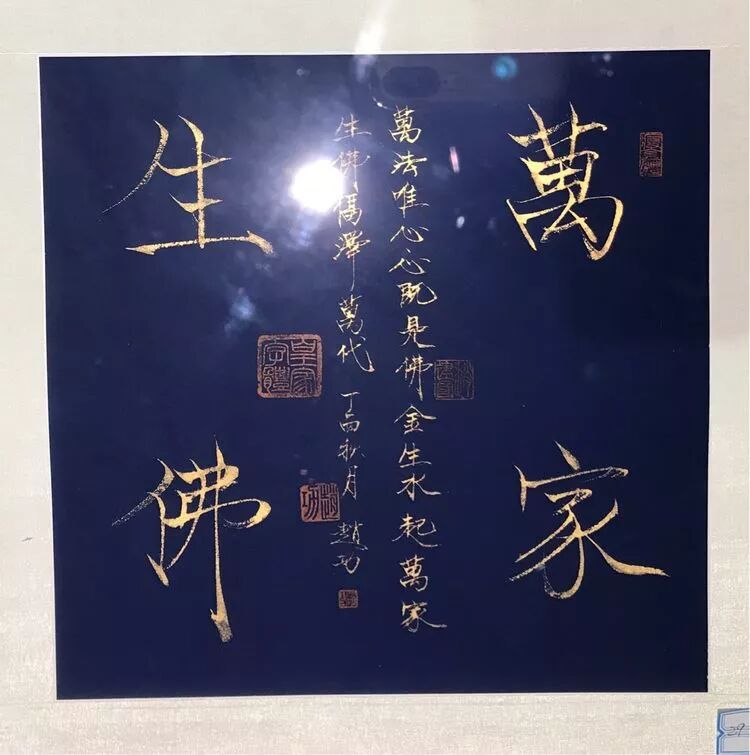 萬家
萬法唯心心既是佛金生水起萬家
生佛福澤萬代 丁酉秋月 趙功
生佛
皇家字體
趙功
29